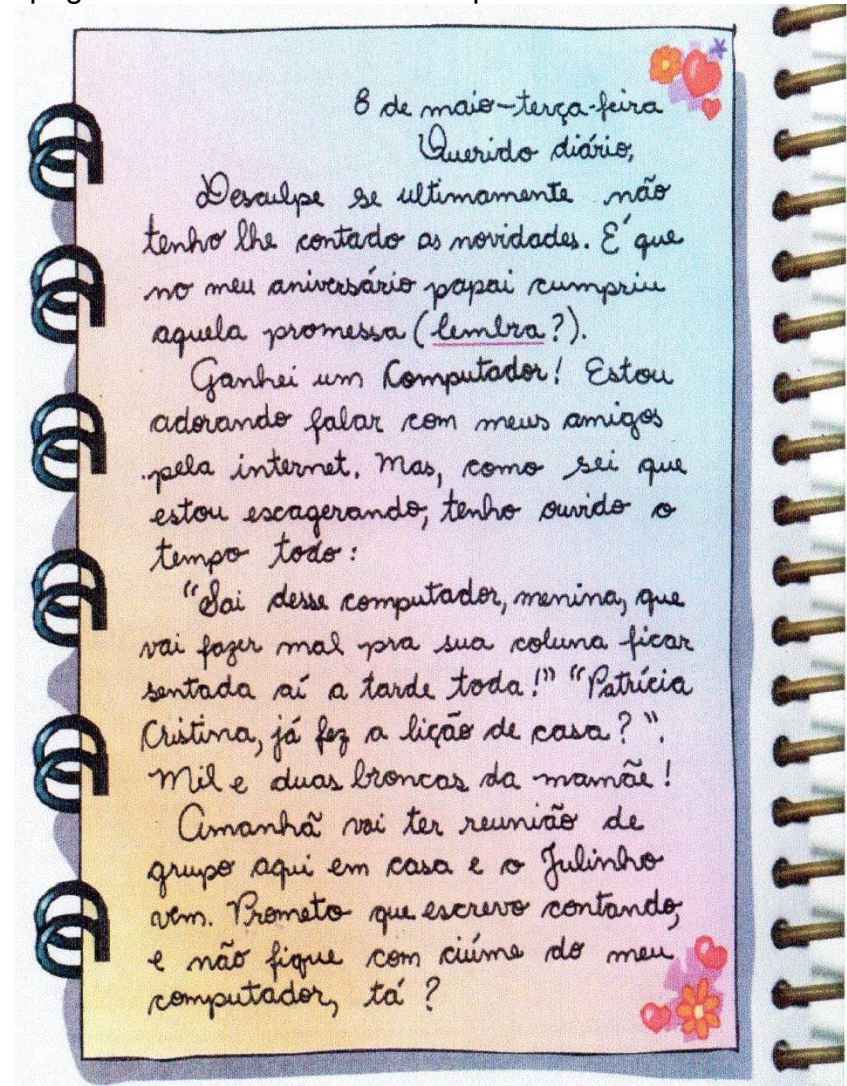 8 de maio-terça-feira
Querido diário,
Desculpe se ultimamente não
tenho lhe contado as novidades. É que
no meu aniversário papai cumpriu
aquela promessa (lembra?).
Ganhei um Computador! Estou
adorando falar com meus amigos
pela internet. Mas, como sei que
estou escagerando, tenho ouvido o
tempo todo:
"Sai desse computador, menina, que
vai fazer mal pra sua coluna ficar
sentada aí a tarde toda!" "Patrícia
Cristina, já fez a lição de casa?".
Mil e duas broncas da mamãe!
Amanhã vai ter reunião de
grupo aqui em casa e o Julinho
vem. Prometo que escrevo contando,
e não fique com ciúme do meu
computador, tá?